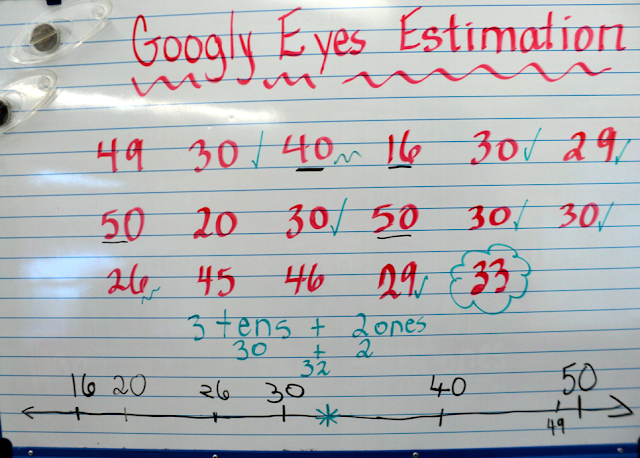 Googly Eyes Estimation
49 30 ✓ 40 16 30 ✓ 29 ✓
50 20 30 ✓ 50 30 ✓ 30 ✓
26 45 46 29 ✓ 33
3 tens + 2 ones
30 + 2
32
16 20 26 30 40 50
49